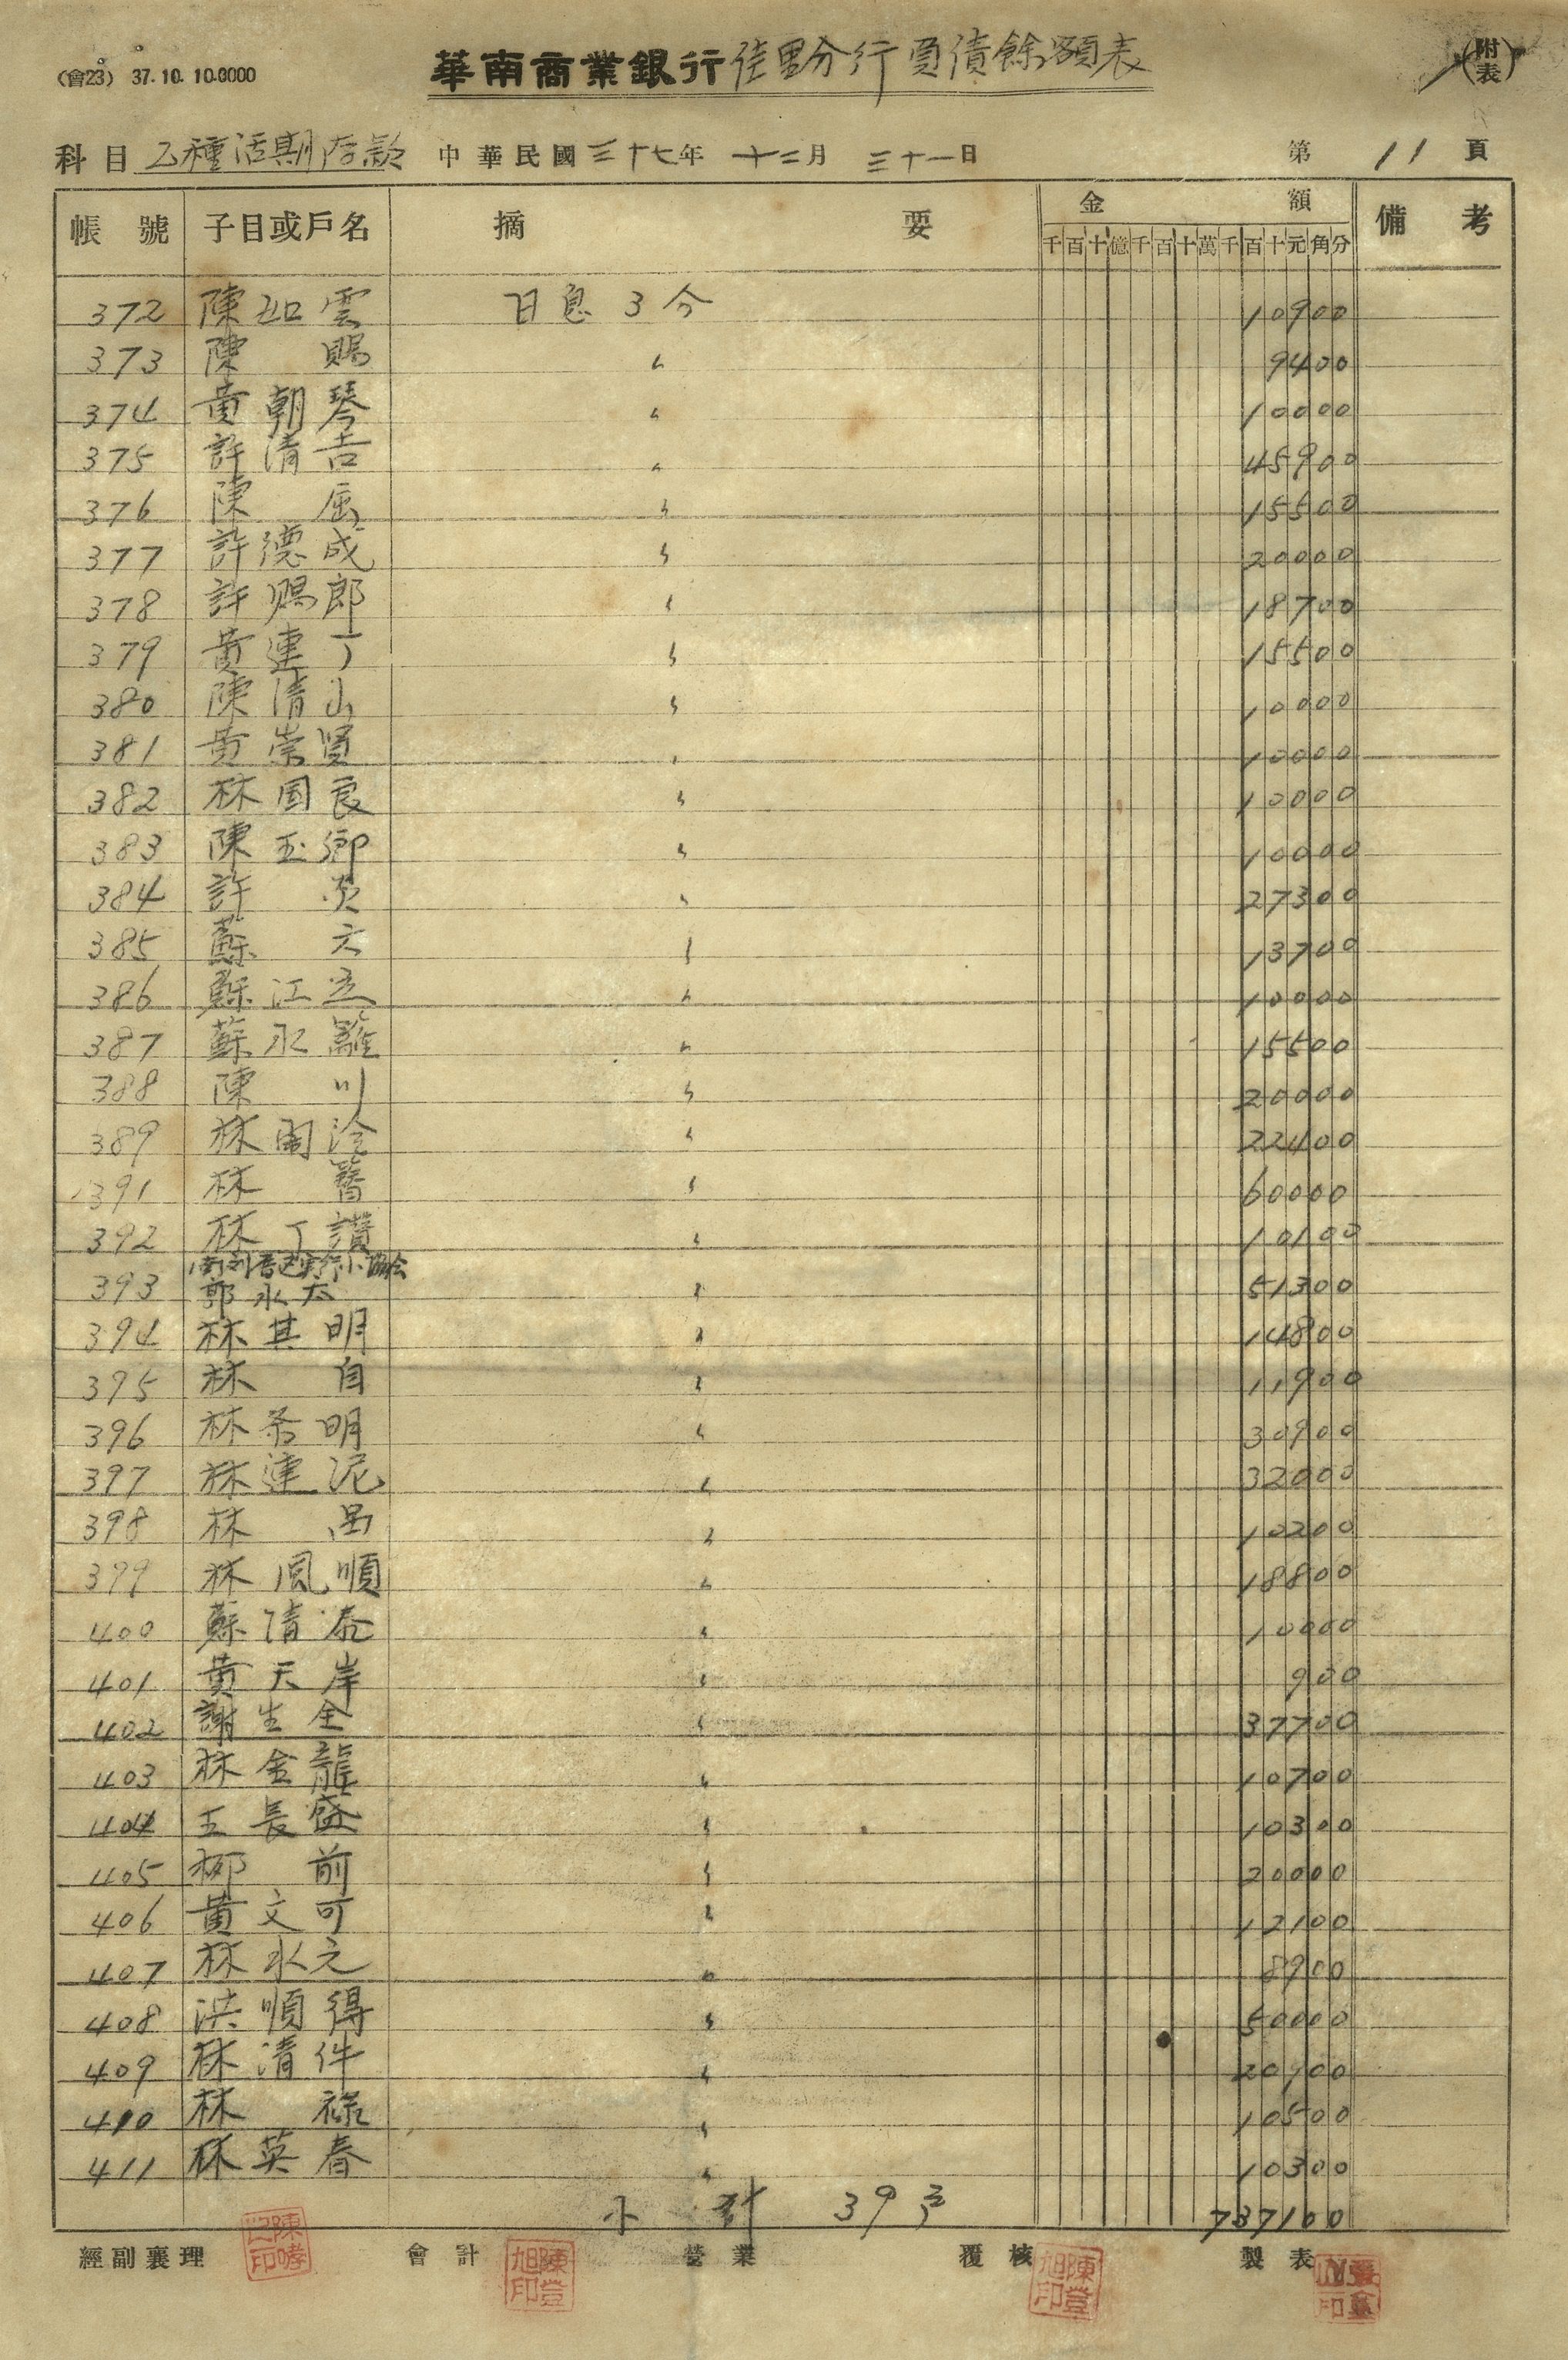 (會23) 37.10.10.0000
華南商業銀行佳里分行負債餘額表
(附表)
科目 乙種活期存款 中華民國三十七年 十二月 三十一日 第 11 頁
帳號 子目或戶名 摘要 金額 備考
千百十億千百十萬千百十元角分
372 陳如雲 日息3分 10900
373 陳賜 〃 9400
374 黃朝琴 〃 10000
375 許清吉 〃 45900
376 陳屈 〃 15500
377 許德成 〃 20000
378 許賜郎 〃 18700
379 黃連丁 〃 15500
380 陳清山 〃 10000
381 黃崇賢 〃 10000
382 林国良 〃 10000
383 陳玉卿 〃 10000
384 許炎 〃 27300
385 蘇六 〃 13700
386 蘇江立 〃 10000
387 蘇永離 〃 15500
388 陳川 〃 20000
389 林開 〃 22400
391 林 〃 60000
392 林丁讚 〃 10100
393 郭永太 〃 51300
394 林其明 〃 14800
395 林自 〃 11900
396 林明 〃 30900
397 林連泥 〃 32000
398 林 〃 10200
399 林風順 〃 18800
400 蘇清泰 〃 10000
401 黃天岸 〃 900
402 謝生全 〃 37700
403 林金龍 〃 10700
404 王長盛 〃 10300
405 柳前 〃 20000
406 黃文可 〃 12100
407 林水元 〃 8900
408 洪順得 〃 50000
409 林清件 〃 20900
410 林祿 〃 10500
411 林英春 〃 10300
小計 39 737100
經副襄理 會計 營業 覆核 製表
陳印
陳登旭印
陳登旭印
印